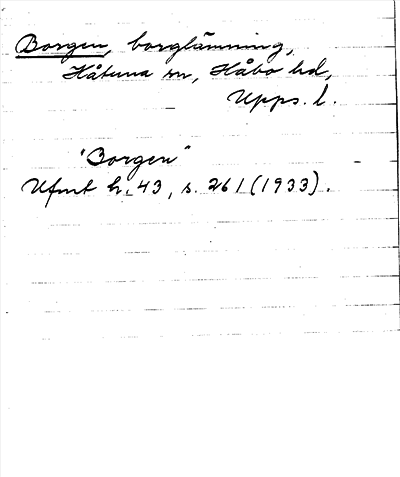 Borgen, borglämning,
Håtuna sn, Håbo hd,
Upps. l.
"Borgen"
Ufmt h. 43, s. 261 (1933).